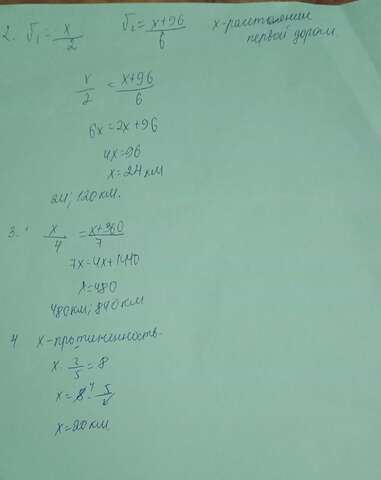 2. V₁ = x/2 V₂ = x+96/6 x-расстояние
первой дороги.
x/2 = x+96/6
6x=2x+96
4x=96
x=24 км
24; 120 км.
3. x/4 = x+360/7
7x=4x+1440
x=480
480 км; 840 км
4 x-протяженность.
x · 2/5 = 8
x = 8⁴ · 5/2
x=20 км